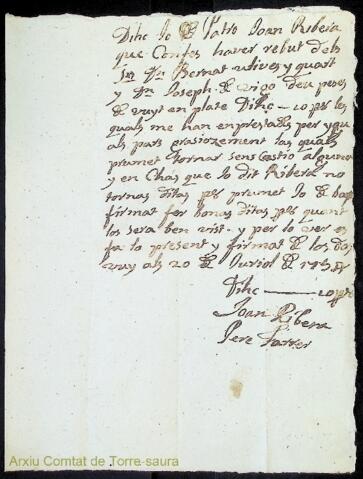 Dihc Jo Patro Joan Ribera
que Confes haver rebut dels
Srs Dn Bernat ulives y quart
y Dn Joseph de vigo deu peses
de vuyt en plate Dihc — 10 ps les
quals me han enprestades per
als pats grasiozement las quals
promet tornar sens Castio alguna
y en Chas que lo dit Ribera no
tornas ditas ps promet Jo
firmat fer bonas ditas ps quant
los sera ben vist y per lo ver es
fa lo present y firmat de los dos
vuy als 20 de Juriol de
Dihc — 10 ps
Joan Ribera
Pere Farrer
Arxiu Comtat de Torre-saura